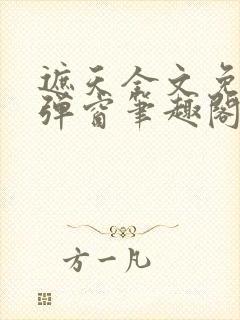 遮天全文免
弹窗笔趣阁
方一凡